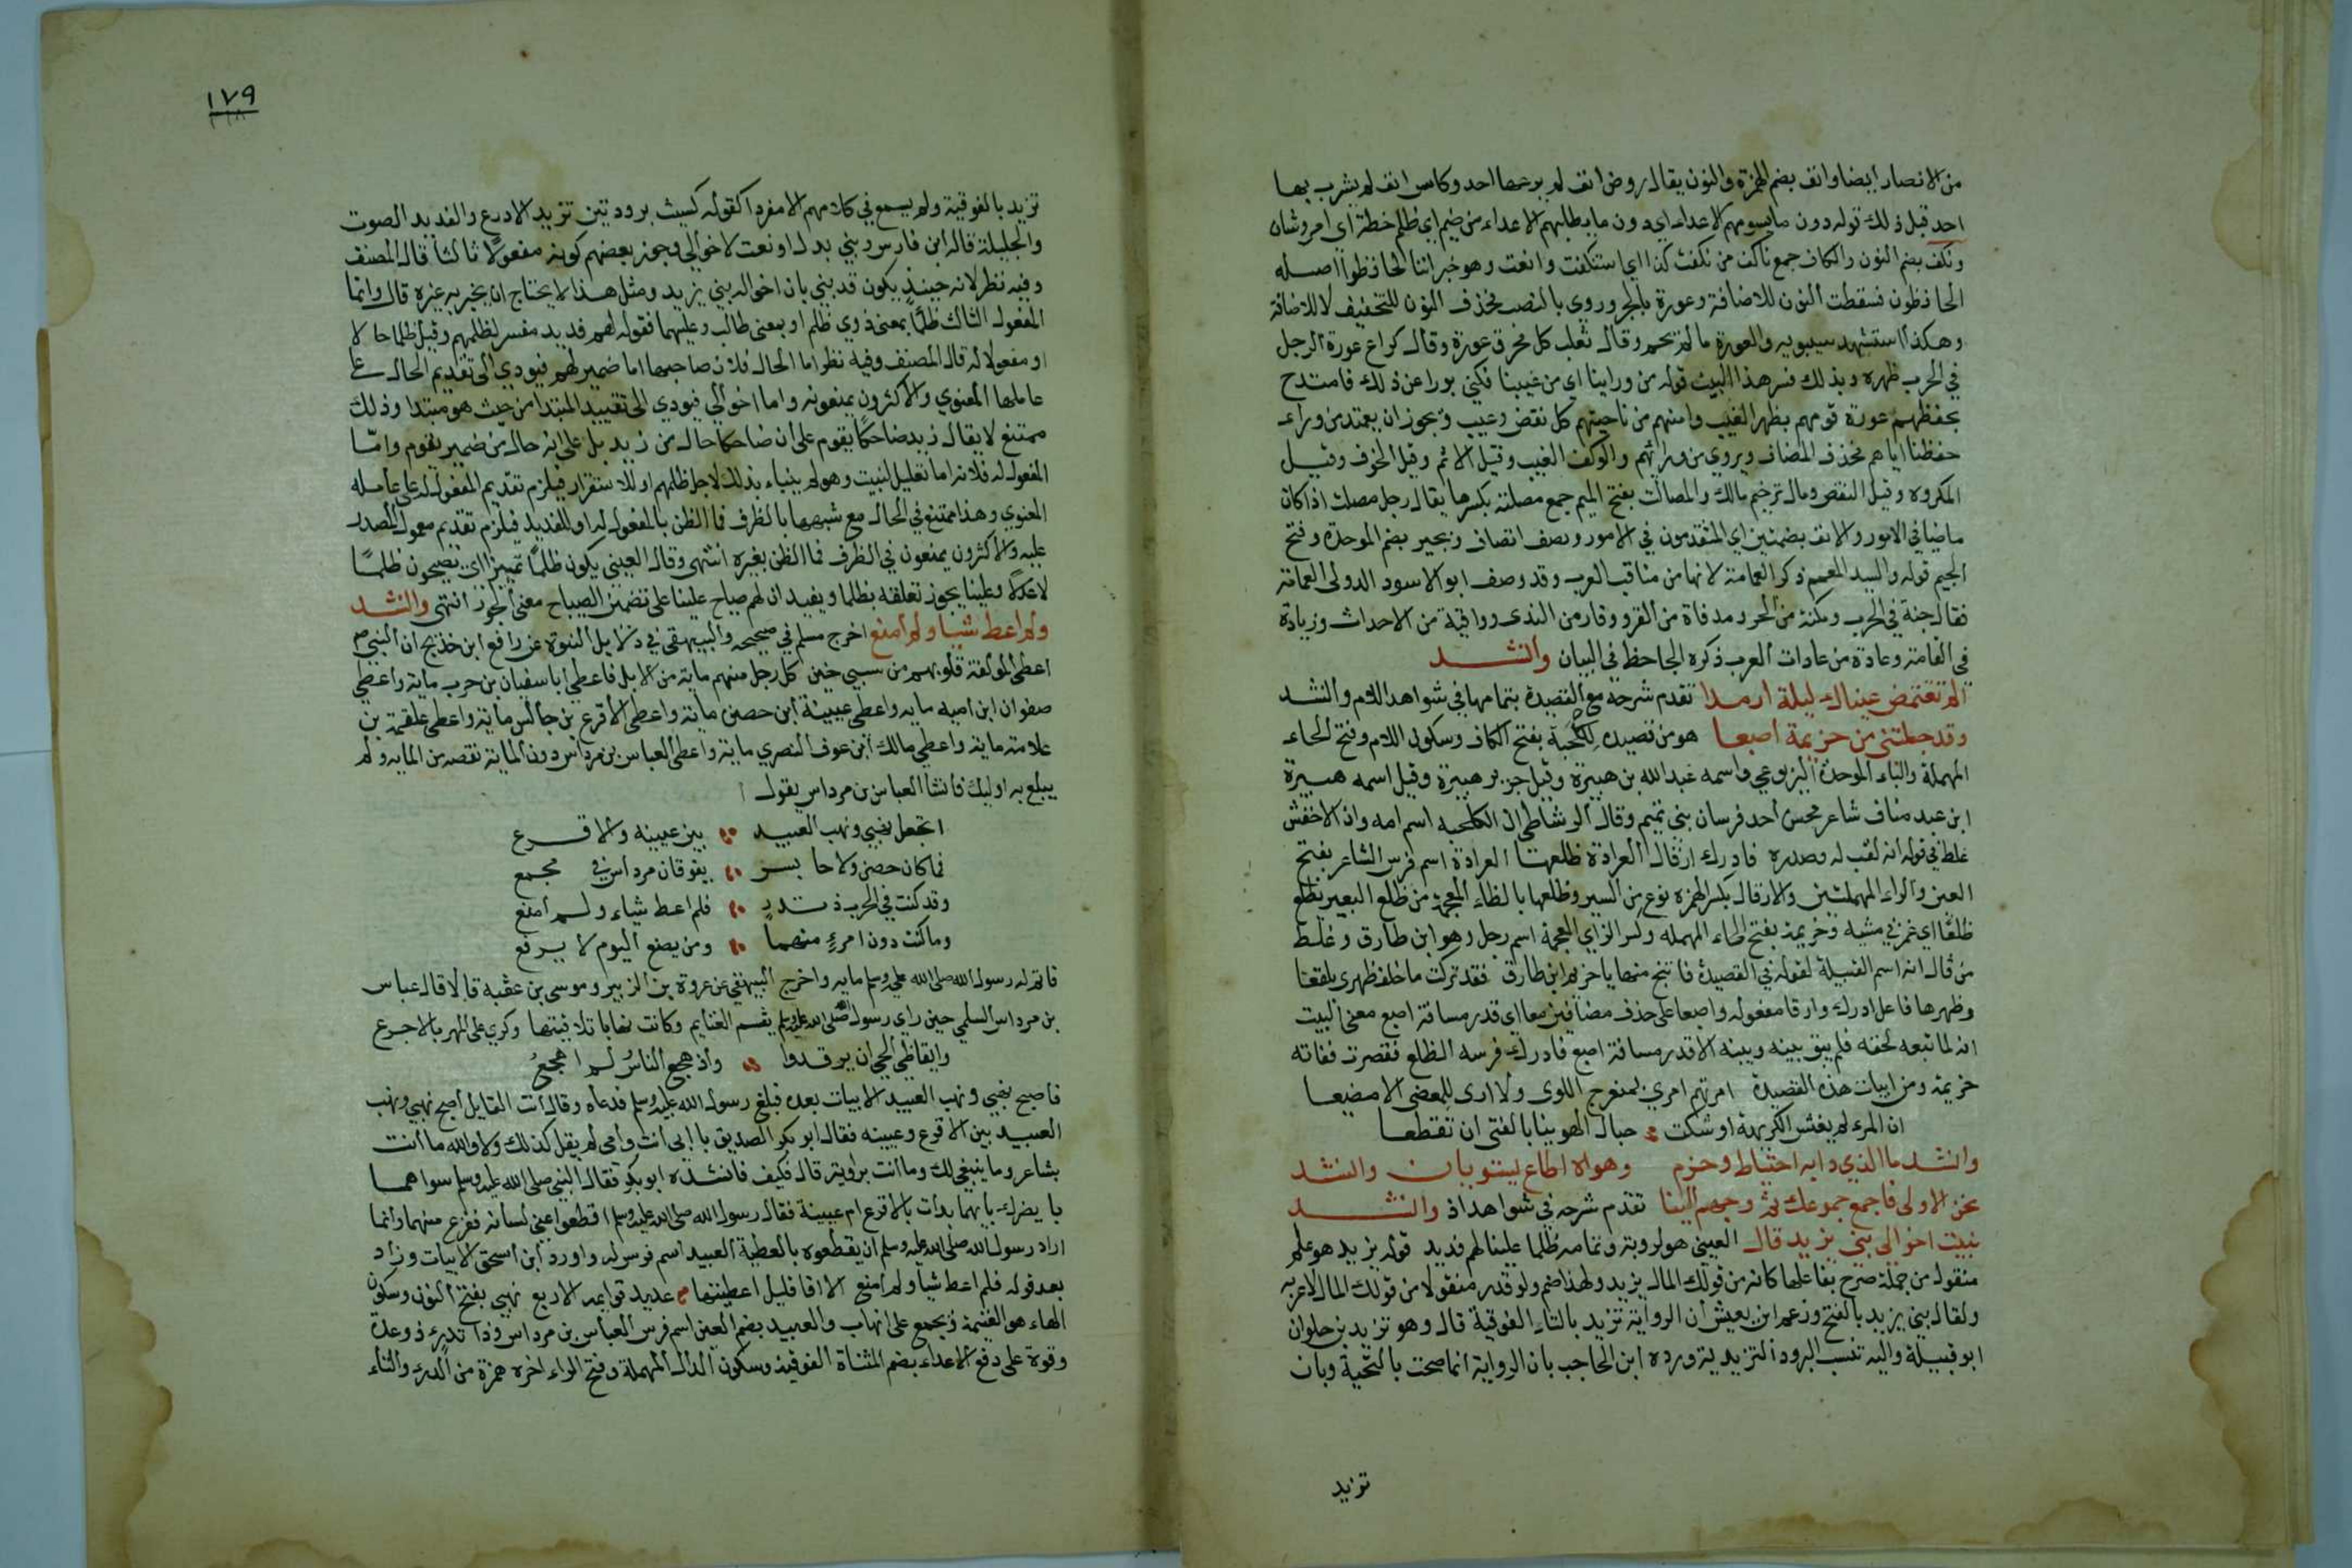 من الانصار ايضا وانف بضم الهمزة والنون يقال روض انف لم يرعها احد وكاس انف لم يشرب بها
احد قبل ذلك قوله دون ما يسومهم الاعداء اي دون ما يطالبهم الاعداء من ضيم اي ظلم خطة اي امر وشان
ونكف بضم النون والكاف جمع ناكف من نكفت كذا اي استنكفت وانفت وهو خبر اننا الحافظوا اصله
الحافظون فسقطت النون للاضافة وعورة بالجر وروي بالنصب فحذف النون للتخفيف لا للاضافة
وهكذا استشهد سيبويه والعورة ما لم تحم وقال ثعلب كل مخرق عورة وقال كراع عورة الرجل
في الحرب ظهره وبذلك فسر هذا البيت قوله من وراينا اي من غيبنا فكني بورا عن ذلك فامتدح
بحفظهم عورة قومهم بظهر الغيب وامنهم من ناحيتهم كل نقض وعيب ويجوز ان يعتمد من وراء
حفظنا اياهم فحذف المضاف ويروى من ورائهم والوكف العيب وقيل الاثم وقيل الخوف وقيل
المكروه وقيل النقص ومال ترخيم مالك والمصالت بفتح الميم جمع مصلته بكسرها يقال رجل مصلت اذا كان
ماضيا في الامور والانف بضمتين اي المتقدمون في الامور ونصف انصاف وبجير بضم الموحدة وفتح
الجيم قوله والسيد المعمم ذكر العمامة لانها من مناقب العرب وقد وصف ابو الاسود الدولي العمامة
فقال جنة في الحرب ومكنة من الحر ومدفاة من القر ووقار من الندى وواقية من الاحداث وزيادة
في القامة وعادة من عادات العرب ذكره الجاحظ في البيان وانشد
الم تغتمض عيناك ليلة ارمدا تقدم شرحه مع القصيدة بتمامها في شواهد اللام وانشد
وقد جعلتني من حزيمة اصبعا هو من قصيده للكلحبة بفتح الكاف وسكون اللام وفتح الحاء
المهملة والباء الموحدة اليربوعي واسمه عبد الله بن هبيرة وقيل جرير بن هبيرة وقيل اسمه هبيرة
ابن عبد مناف شاعر محسن احد فرسان بني تميم وقال الوشاطي ان الكلحبه اسم امه وان الاخفش
غلط في قوله انه لقب له وصدره فادرك ارقال العرادة ظلعها العرادة اسم فرس الشاعر بفتح
العين والراء المهملتين والارقال بكسر الهمزه نوع من السير وظلعها بالظاء المعجمة من ظلع البعير يظلع
ظلعا اي غمز في مشيه وحزيمة بفتح الحاء المهمله وكسر الزاي المعجمة اسم رجل وهو ابن طارق وغلط
من قال انه اسم القبيلة لقوله في القصيدة فان تنج منها يا حزيم ابن طارق فقد تركت ما خلف ظهرك بلقعا
وظهرها فاعل ادرك وارقا مفعوله واصبعا على حذف مضافين معا اي قدر مسافة اصبع معنى البيت
انه لما تبعه لحقه فلم يبق بينه وبينه الا قدر مسافة اصبع فادرك فرسه الظلع فقصرت ففاته
حزيمة ومن ابيات هذه القصيدة امرتهم امري بمنعرج اللوى ولا ارى للمعصي الا مضيعا
ان المرء لم يغش الكريهة اوشكت حبال الهوينا بالفتى ان تقطعا
وانشد ما الذي دابه احتياط وحزم وهواه اطاع يستويان وانشد
نحن الاولى فاجمع جموعك ثم وجههم الينا تقدم شرحه في شواهد اذ وانشد
نبيت اخوالي بني يزيد قال العيني هو لروبة وتمامه ظلما علينا لهم فديد قوله يزيد هو علم
منقول من جملة صرح بفاعلها كانه من قولك المال يزيد ولهذا ضم ولو قدر منقولا من قولك المال لاعربه
ولقال بني يزيد بالفتح وزعم ابن يعيش ان الرواية تزيد بالتاء الفوقية قال وهو تزيد بن حلوان
ابو قبيلة واليه تنسب البرود التزيدية ورده ابن الحاجب بان الرواية انما صحت بالتحتية وبان
تزيد
١٧٩
تزيد بالفوقية ولم يسمع في كلامهم الا مفردا كقوله كسيت برود تين تزيد الاذرع والفديد الصوت
والجلبلة قاله ابن فارس وبني بدل او نعت لاخوالي وجوز بعضهم كونه مفعولا ثالثا قال المصنف
وفيه نظر لانه حينئذ يكون قد بني بان اخواله بني يزيد ومثل هذا لا يحتاج ان يخبر به غيره قال وانما
المفعول الثالث ظلما بمعنى ذوي ظلم او بمعنى طالب وعليهما فقوله لهم فديد مفسر لظلمهم وقيل ظلما حالا
او مفعولا له قال المصنف وفيه نظر اما الحال فلان صاحبها اما ضمير لهم فيودي الى تقديم الحال على
عاملها المعنوي والاكثرون يمنعونه واما اخوالي فيودي الى تقييد المبتدا من حيث هو مبتدا وذلك
ممتنع لا يقال زيد ضاحكا يقوم على ان ضاحكا حال من زيد بل على انه حال من ضمير يقوم واما
المفعول له فلانه اما تعليل لنبيت وهو لم ينباء بذلك لاجل ظلمهم او للاستقرار فيلزم تقديم المفعول له على عامله
المعنوي وهذا ممتنع في الحال مع شبهها بالظرف فما الظن بالمفعول له او للفديد فيلزم تقديم معمول المصدر
عليه والاكثرون يمنعون في الظرف فما الظن بغيره انتهى وقال العيني يكون ظلما تمييزا اي يصيحون ظلما
لا عدلا وعلينا يجوز تعلقه بظلما ويفيد ان لهم صياح علينا على تضمين الصياح معنى الجور انتهى وانشد
ولم اعط شيا ولم امنع اخرج مسلم في صحيحه والبيهقي في دلايل النبوة عن رافع ابن خديج ان النبي ص
اعطى المولفة قلوبهم من سبي حنين كل رجل منهم ماية من الابل فاعطى ابا سفيان بن حرب ماية واعطى
صفوان ابن اميه مايه واعطى عيينة ابن حصن ماية واعطى الاقرع بن حابس ماية واعطى علقمة بن
علاثة ماية واعطى مالك ابن عوف النصري ماية واعطى العباس بن مرداس دون الماية نقصه من المايه ولم
يبلغ به اوليك فانشا العباس بن مرداس يقول
اتجعل نهبي ونهب العبيد بين عيينه والاقرع
فما كان حصن ولا حابس يفوقان مرداس في مجمع
وقد كنت في الحرب ذا تدرء فلم اعط شياء ولم امنع
وما كنت دون امرء منهما ومن يضع اليوم لا يرفع
فاتم له رسول الله صلى الله عليه وسلم مايه واخرج البيهقي عن عروة بن الزبير وموسى بن عقبه قالا قال عباس
بن مرداس السلمي حين راى رسول الله صلى الله عليه وسلم يقسم الغنايم وكانت نهابا تلافيتها وكري على المهر بالاجرع
وايقاظي الحي ان يرقدوا واذ هجع الناس لم اهجع
فاصبح نهبي ونهب العبيد الابيات بعده فبلغ رسول الله عليه وسلم فدعاه وقال انت القايل اصبح نهبي ونهب
العبيد بين الاقرع وعيينه فقال ابو بكر الصديق بابي انت وامي لم يقل كذلك ولا والله ما انت
بشاعر وما ينبغي لك وما انت براوية قال فكيف فانشده ابو بكر فقال النبي صلى الله عليه وسلم سواهما
ما يضرك بايهما بدات بالاقرع ام عيينة فقال رسول الله صلى الله عليه وسلم اقطعوا عني لسانه ففزع منهما وانما
اراد رسول الله صلى الله عليه وسلم ان يقطعوه بالعطية العبيد اسم فرس له واورد ابن اسحق الابيات وزاد
بعد قوله فلم اعط شيا ولم امنع الا افاقليل اعطيتها عديد قوايمه الاربع نهبي بفتح النون وسكون
الهاء هو الغنيمة ويجمع على نهاب والعبيد بضم العين اسم فرس العباس بن مرداس وذا تدرء ذو عدة
وقوة على دفع الاعداء بضم المثناة الفوقية وسكون الدال المهملة وفتح الراء اخره همزة من الدرء والتاء